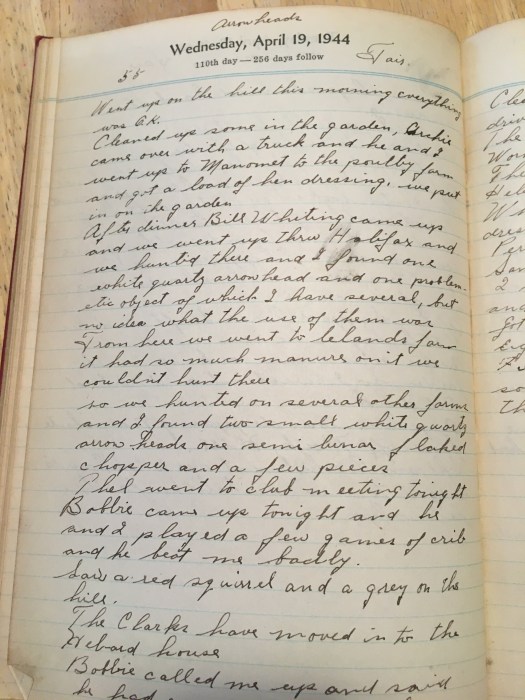 Arrow heads
Wednesday, April 19, 1944
110th day — 256 days follow
Fair.
55
Went up on the hill this morning everything
was O.K.
Cleaned up some in the garden, Archie
came over with a truck and he and I
went up to Manomet to the poultry farm
and got a load of hen dressing, we put
in on the garden
After dinner Bill Whiting came up
and we went up thru Halifax and
we hunted there and I found one
white quartz arrow head and one problem-
etic object of which I have several, but
no idea what the use of them was
From here we went to Lelands farm
it had so much manure on it we
couldn't hunt there
so we hunted on several other farms
and I found two small white quartz
arrow heads one semi lunar flaked
chopper and a few pieces
Phel went to club meeting tonight
Bobbie came up tonight and he
and I played a few games of crib
and he beat me badly.
Saw a red squirrel and a grey on the
hill.
The Clarks have moved in to the
Hebard house
Bobbie called me up and said
he had